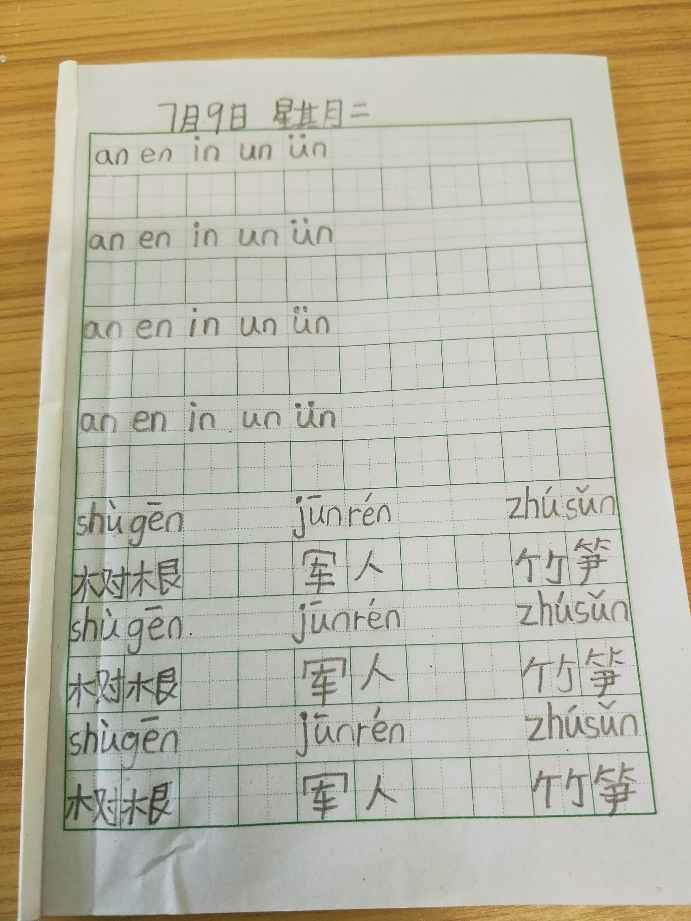 7月9日 星期二
an en in un ün
an en in un ün
an en in un ün
an en in un ün
shùgēn jūnrén zhúsǔn
树根 军人 竹笋
shùgēn jūnrén zhúsǔn
树根 军人 竹笋
shùgēn jūnrén zhúsǔn
树根 军人 竹笋